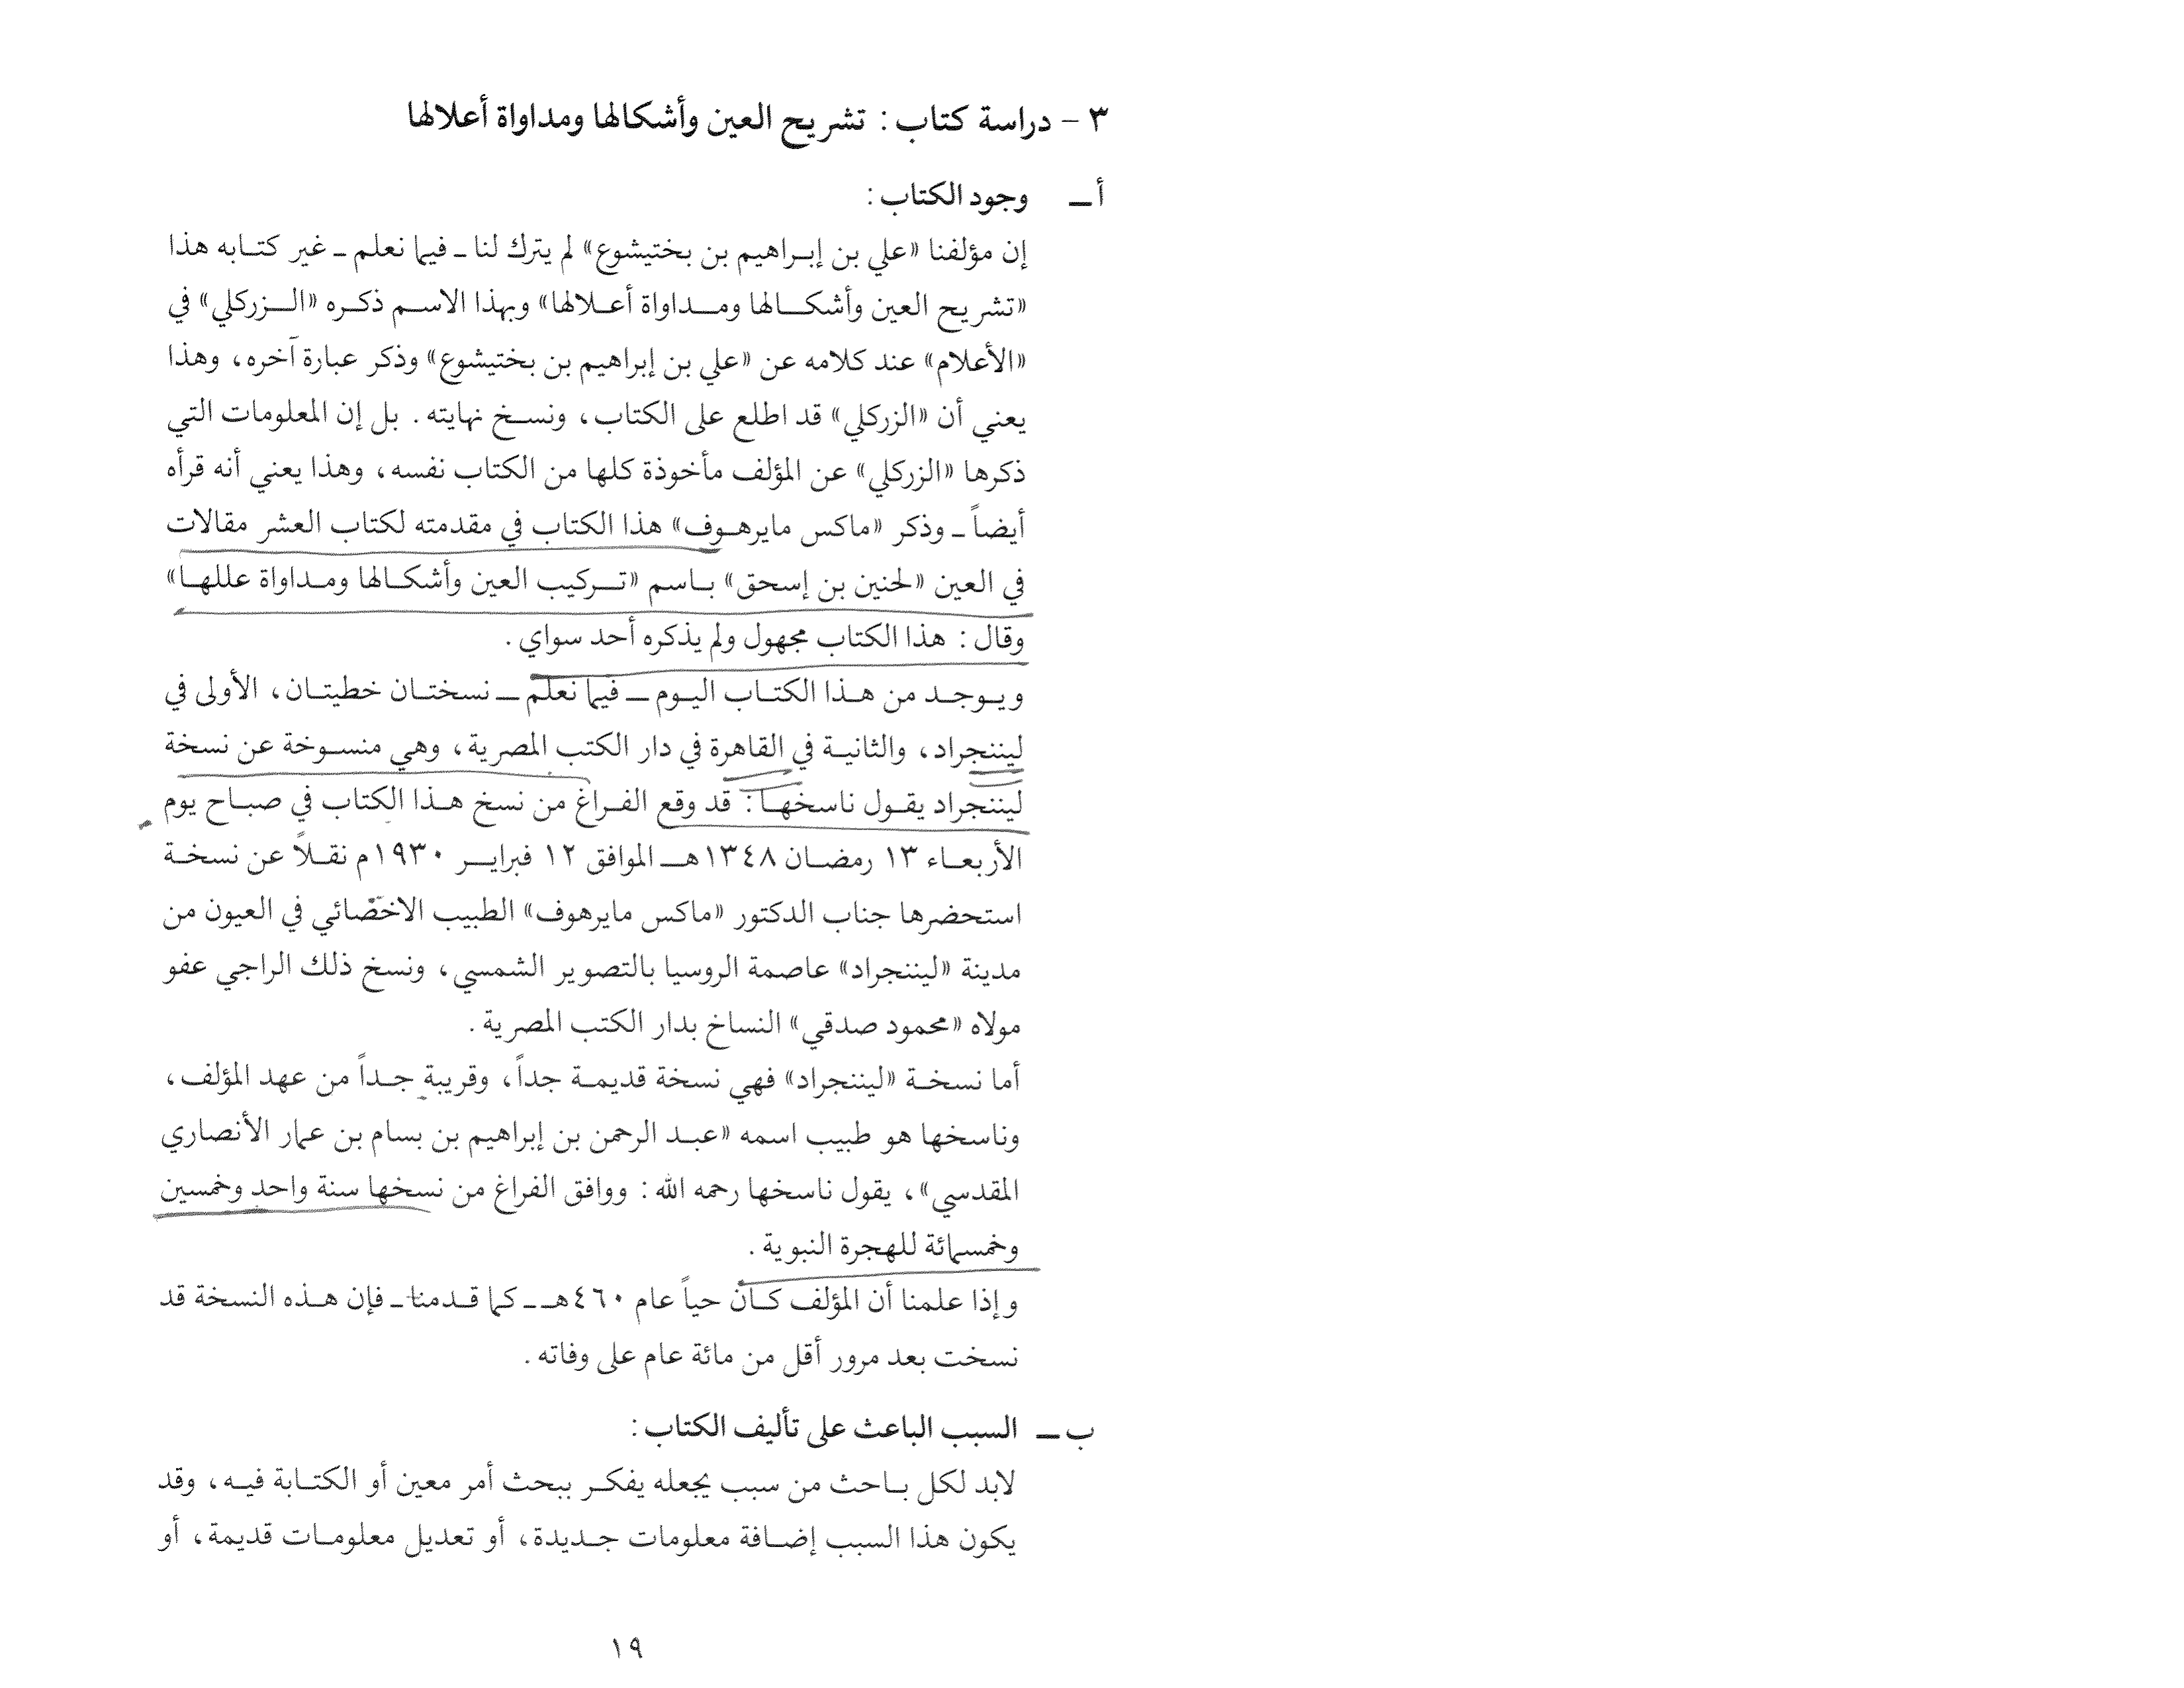 ٣ – دراسة كتاب : تشريح العين وأشكالها ومداواة أعلالها
أ ـ وجود الكتاب :
إن مؤلفنا «علي بن إبراهيم بن بختيشوع» لم يترك لنا ـ فيما نعلم ـ غير كتابه هذا
«تشريح العين وأشكالها ومداواة أعلالها» وبهذا الاسم ذكره «الزركلي» في
«الأعلام» عند كلامه عن «علي بن إبراهيم بن بختيشوع» وذكر عبارة آخره، وهذا
يعني أن «الزركلي» قد اطلع على الكتاب، ونسخ نهايته . بل إن المعلومات التي
ذكرها «الزركلي» عن المؤلف مأخوذة كلها من الكتاب نفسه، وهذا يعني أنه قرأه
أيضاً ـ وذكر «ماكس مايرهوف» هذا الكتاب في مقدمته لكتاب العشر مقالات
في العين «لحنين بن إسحق» باسم «تركيب العين وأشكالها ومداواة عللها»
وقال : هذا الكتاب مجهول ولم يذكره أحد سواي .
ويوجد من هذا الكتاب اليوم ـ فيما نعلم ـ نسختان خطيتان، الأولى في
ليننجراد، والثانية في القاهرة في دار الكتب المصرية، وهي منسوخة عن نسخة
ليننجراد يقول ناسخها : قد وقع الفراغ من نسخ هذا الكتاب في صباح يوم
الأربعاء ١٣ رمضان ١٣٤٨هـ الموافق ١٢ فبراير ١٩٣٠م نقلاً عن نسخة
استحضرها جناب الدكتور «ماكس مايرهوف» الطبيب الاخصّائي في العيون من
مدينة «ليننجراد» عاصمة الروسيا بالتصوير الشمسي، ونسخ ذلك الراجي عفو
مولاه «محمود صدقي» النساخ بدار الكتب المصرية .
أما نسخة «ليننجراد» فهي نسخة قديمة جداً، وقريبة جداً من عهد المؤلف،
وناسخها هو طبيب اسمه «عبد الرحمن بن إبراهيم بن بسام بن عمار الأنصاري
المقدسي»، يقول ناسخها رحمه الله : ووافق الفراغ من نسخها سنة واحد وخمسين
وخمسمائة للهجرة النبوية .
وإذا علمنا أن المؤلف كان حياً عام ٤٦٠هـ ـ كما قدمنا ـ فإن هذه النسخة قد
نسخت بعد مرور أقل من مائة عام على وفاته .
ب ـ السبب الباعث على تأليف الكتاب :
لابد لكل باحث من سبب يجعله يفكر ببحث أمر معين أو الكتابة فيه، وقد
يكون هذا السبب إضافة معلومات جديدة، أو تعديل معلومات قديمة، أو
١٩